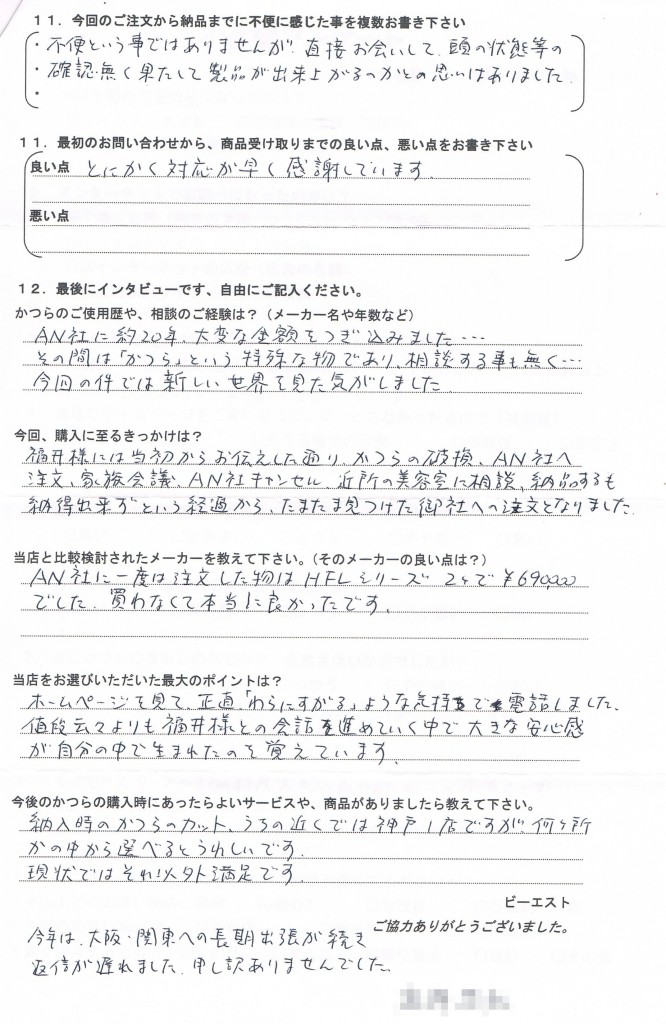 11．今回のご注文から納品までに不便に感じた事を複数お書き下さい
・不便という事ではありませんが、直接お会いして、頭の状態等の
・確認無く果たして製品が出来上がるのかとの思いはありました。
・
11．最初のお問い合わせから、商品受け取りまでの良い点、悪い点をお書き下さい
良い点 とにかく対応が早く感謝しています。
悪い点
12．最後にインタビューです、自由にご記入ください。
かつらのご使用歴や、相談のご経験は？（メーカー名や年数など）
AN社に約20年、大変な金額をつぎ込みました…
その間は「かつら」という特殊な物であり、相談する事も無く…
今回の件では新しい世界を見た気がしました
今回、購入に至るきっかけは？
福井様には当初からお伝えした通り、かつらの破損、AN社へ
注文、家族会議、AN社キャンセル、近所の美容室に相談、納品するも
納得出来ずという経過から、たまたま見つけた御社への注文となりました。
当店と比較検討されたメーカーを教えて下さい。（そのメーカーの良い点は？）
AN社に一度は注文した物はHFLシリーズ 2ケで¥690,000
でした。買わなくて本当に良かったです。
当店をお選びいただいた最大のポイントは？
ホームページを見て、正直「わらにすがる」ような気持で電話しました、
値段云々よりも福井様との会話を進めていく中で大きな安心感
が自分の中で生まれたのを覚えています。
今後のかつらの購入時にあったらよいサービスや、商品がありましたら教えて下さい。
納入時のかつらのカット、うちの近くでは神戸1店ですが、何ヶ所
かの中から選べるとうれしいです。
現状ではそれ以外満足です
ビーエスト
ご協力ありがとうございました。
今年は、大阪・関東への長期出張が続き
返信が遅れました、申し訳ありませんでした。